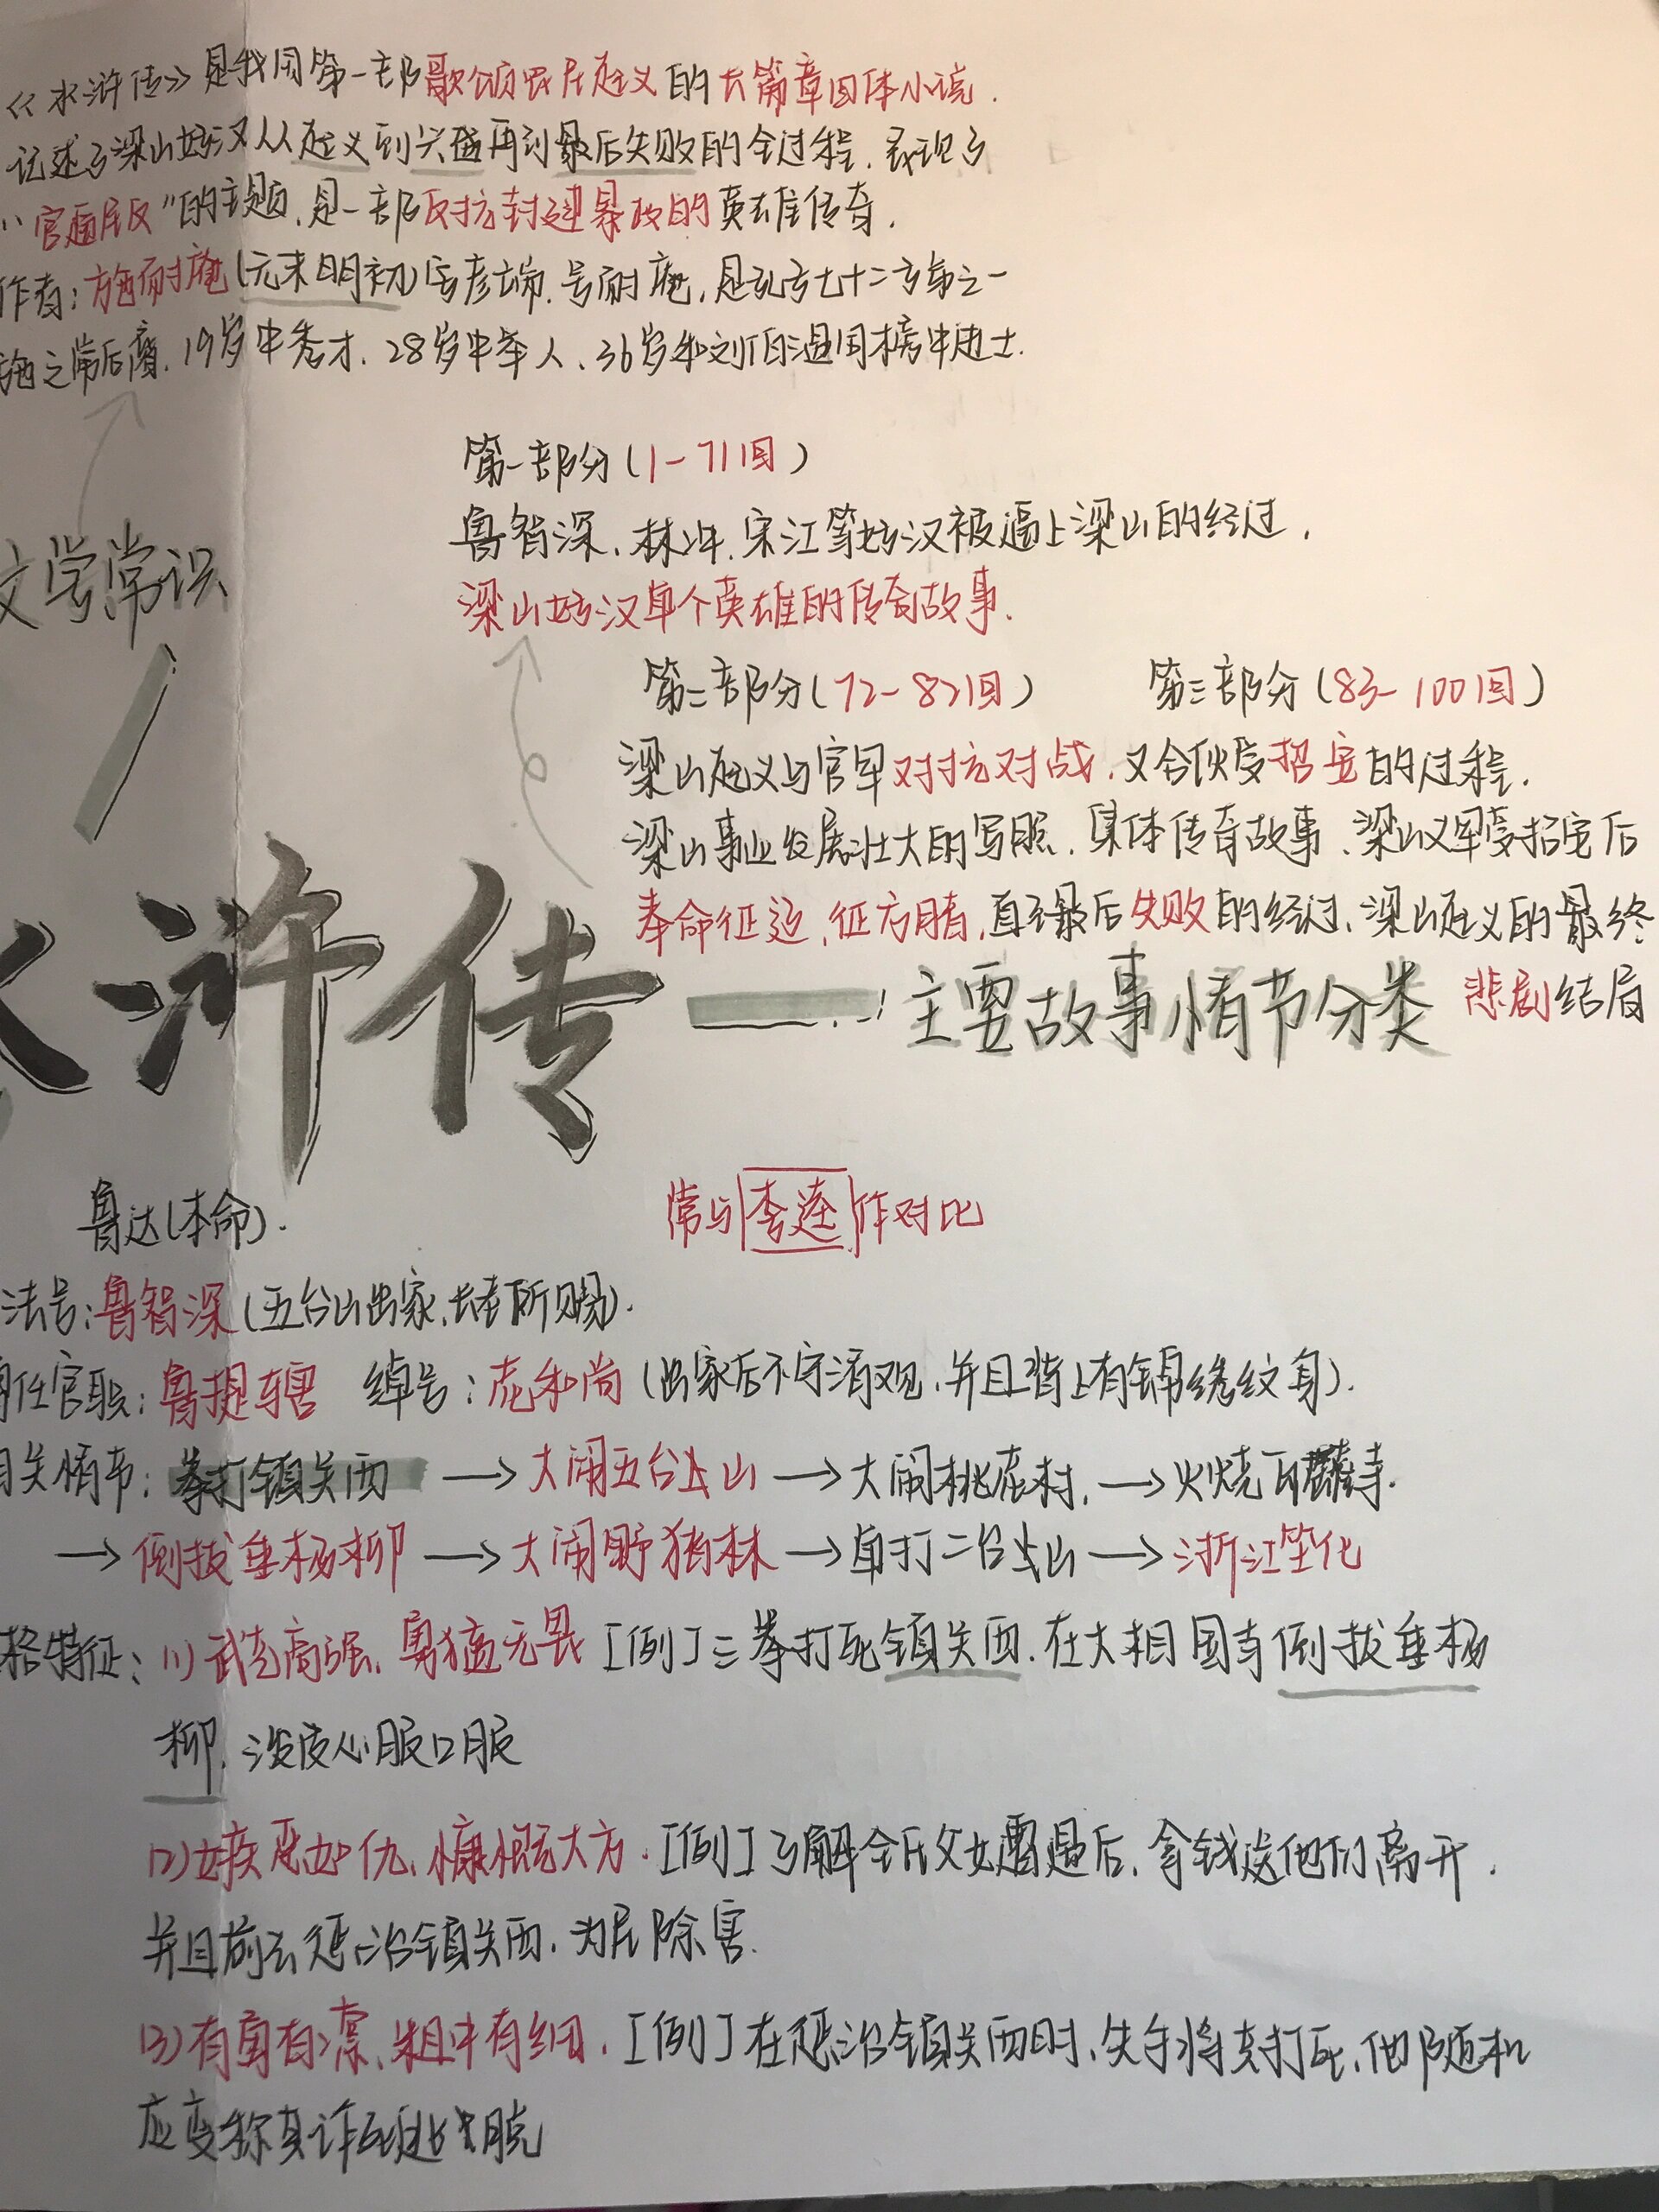 《水浒传》是我国第一部歌颂农民起义的长篇章回体小说.
记述了梁山好汉从起义到兴盛再到最后失败的全过程.表现了
"官逼民反"的主题,是一部反抗封建暴政的英雄传奇.
作者:施耐庵(元末明初)字彦端.号耐庵,是孔子七十二弟子之一
施之常后裔.19岁中秀才.28岁中举人、36岁和刘伯温同榜中进士.
第一部分(1-71回)
鲁智深、林冲.宋江等好汉被逼上梁山的经过.
梁山好汉单个英雄的传奇故事.
文学常识
第二部分(72-82回) 第三部分(83-100回)
梁山起义与官军对抗对战.又合伙受招安的过程.
梁山事业发展壮大的写照.集体传奇故事、梁山义军受招安后
奉命征辽,征方腊,直至最后失败的经过、梁山起义的最终
悲剧结局
水浒传 主要故事情节分类
鲁达(本命).
常与李逵作对比
法号:鲁智深(五台山出家,长老所赐).
任官职:鲁提辖 绰号:花和尚(出家后不守清规.并且背上有锦绣纹身).
相关情节:拳打镇关西→大闹五台山→大闹桃花村,→火烧瓦罐寺.
→倒拔垂杨柳→大闹野猪林→单打二龙山→浙江坐化
格特征:(1)武艺高强,勇猛无畏[例]三拳打死镇关西.在大相国寺倒拔垂杨
柳.泼皮心服口服
(2)嫉恶如仇,慷慨大方.[例]了解金氏父女遭遇后,拿钱送他们离开.
并且前去惩治镇关西.为民除害.
(3)有勇有谋,粗中有细.[例]在惩治镇关西时,失手将其打死,他随机
应变称其诈死逃脱